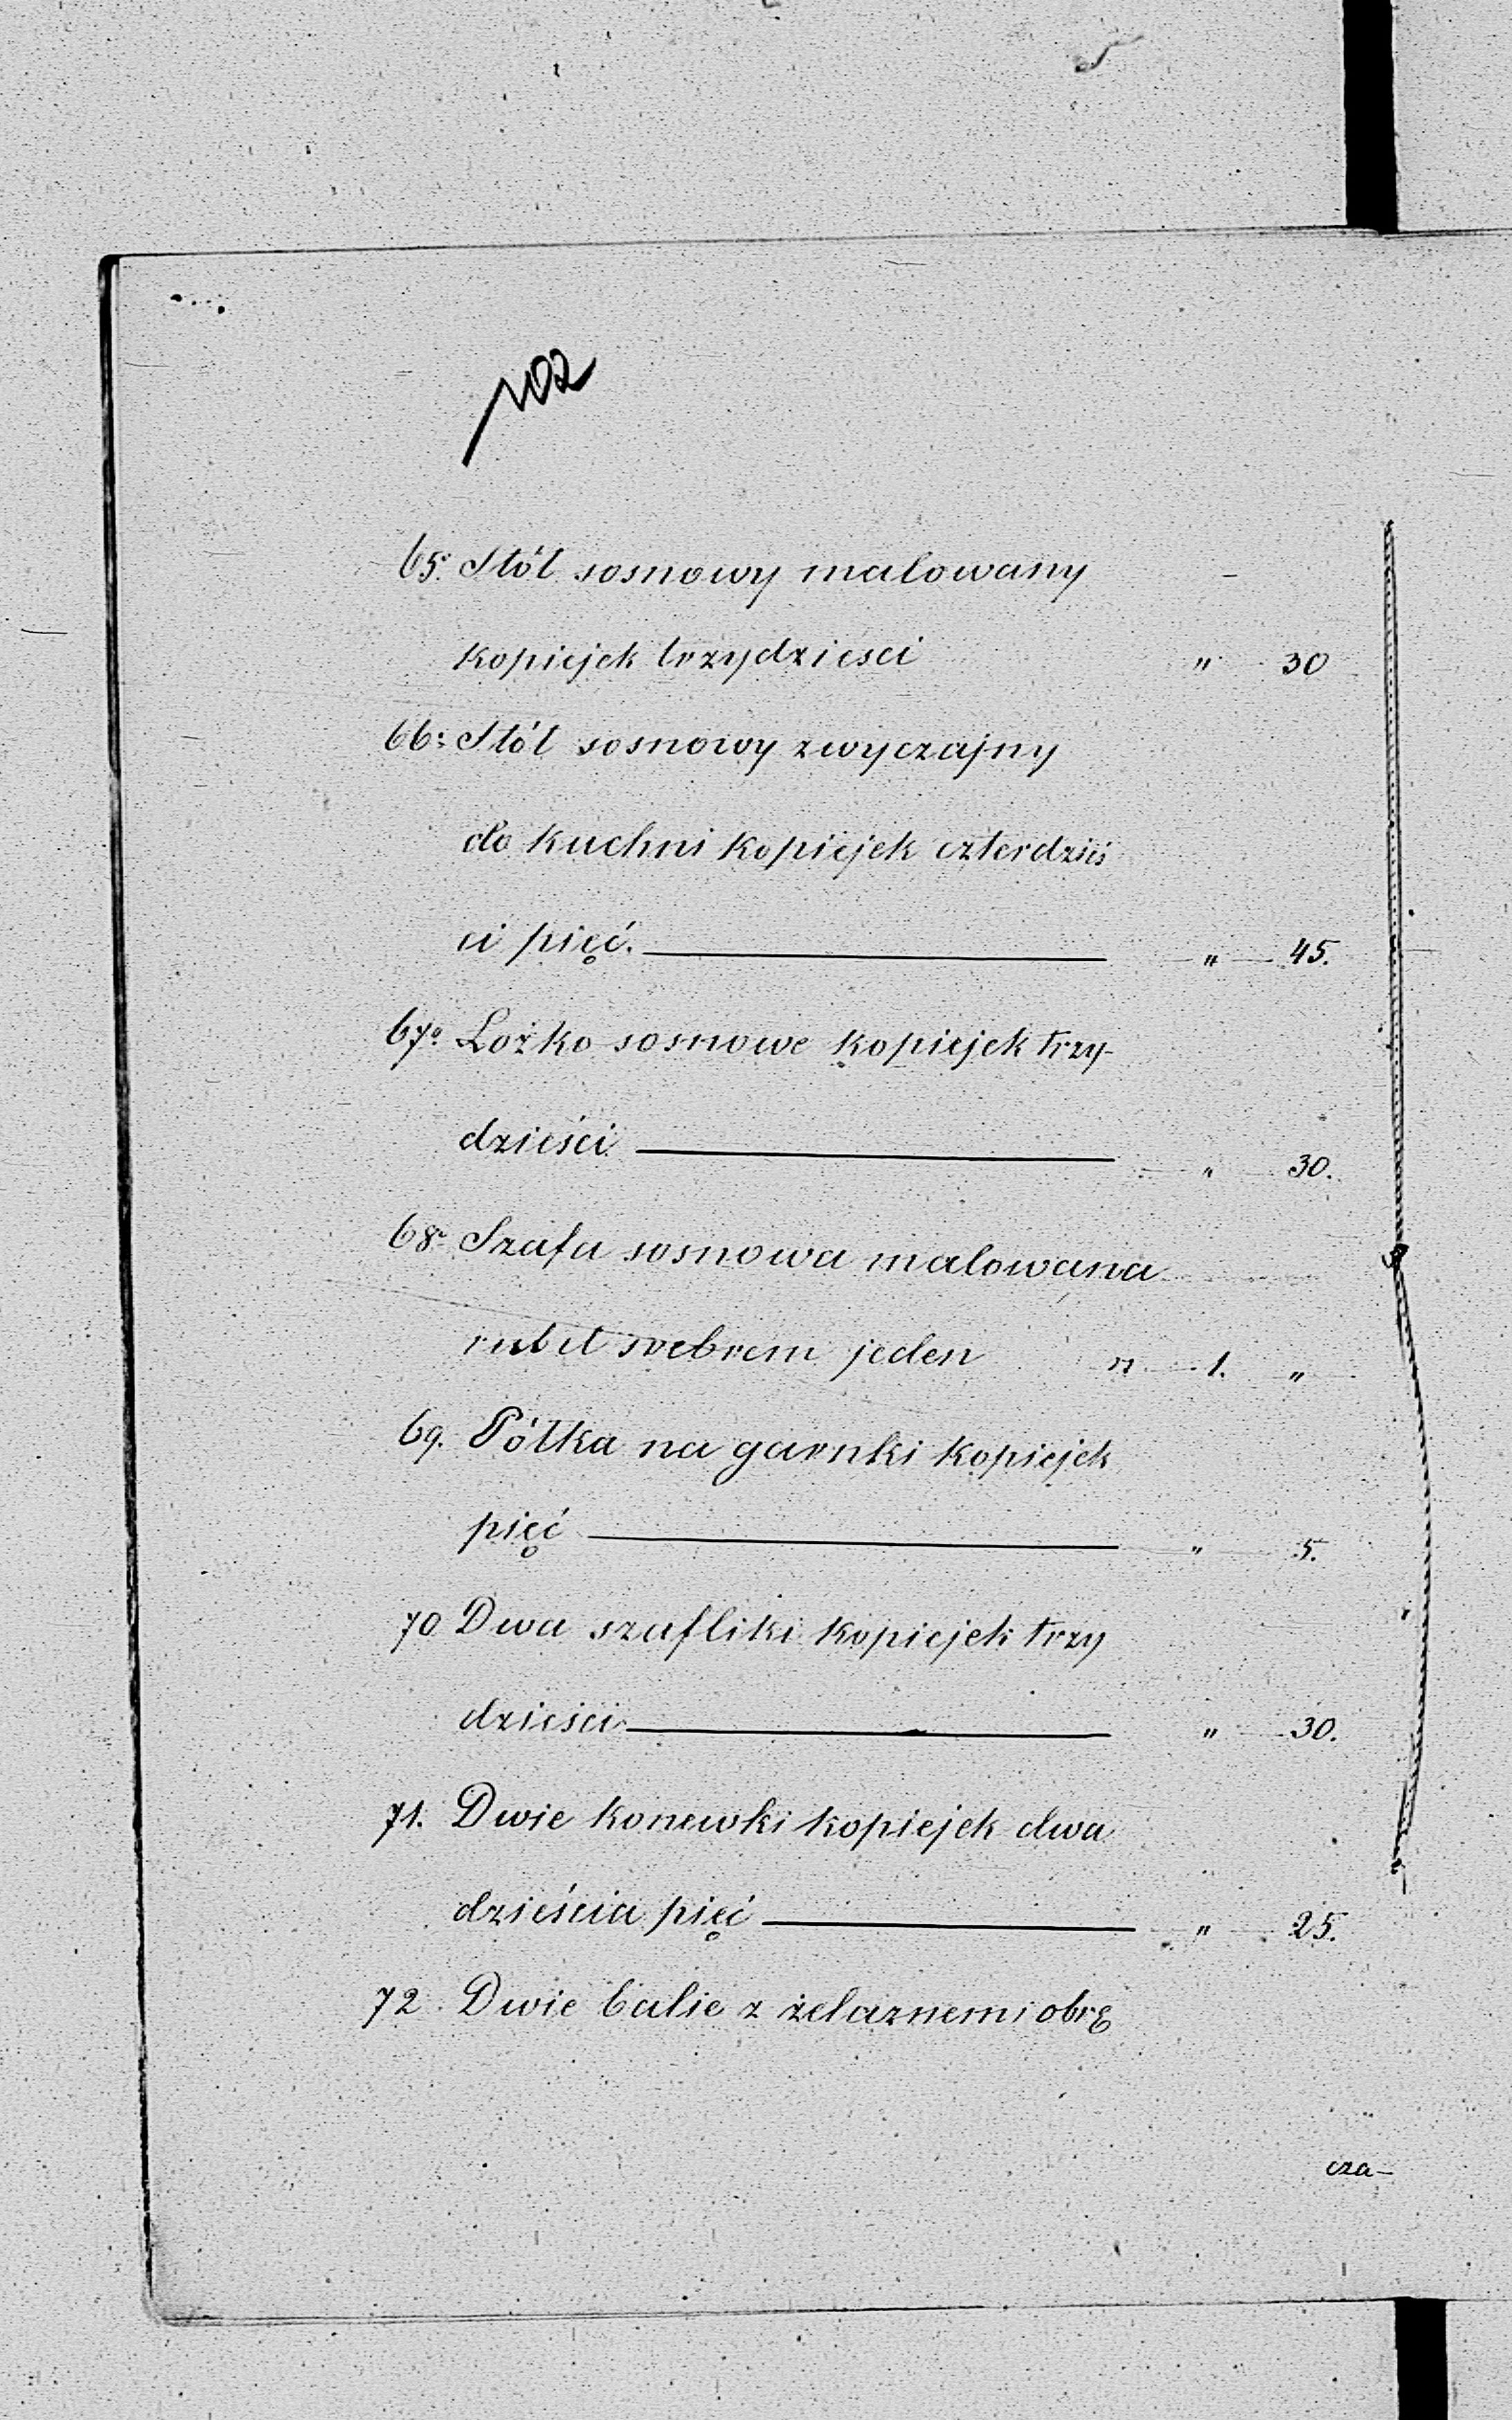 102
65. Stół sosnowy malowany
kopiejek trzydziesci " 30
66: Stół sosnowy zwyczajny
do kuchni kopiejek czterdzieś
ci pięć. " 45.
67. Łożko sosnowe kopiejek trzy-
dzieści " 30.
68. Szafa sosnowa malowana
rubel srebrem jeden r 1. "
69. Pólka na garnki kopiejek
pięć " 5.
70 Dwa szafliki kopiejek trzy
dzieści " 30.
71. Dwie konewki kopiejek dwa
dzieścia pięć " 25.
72. Dwie balie z żelaznemi obrę
cza-